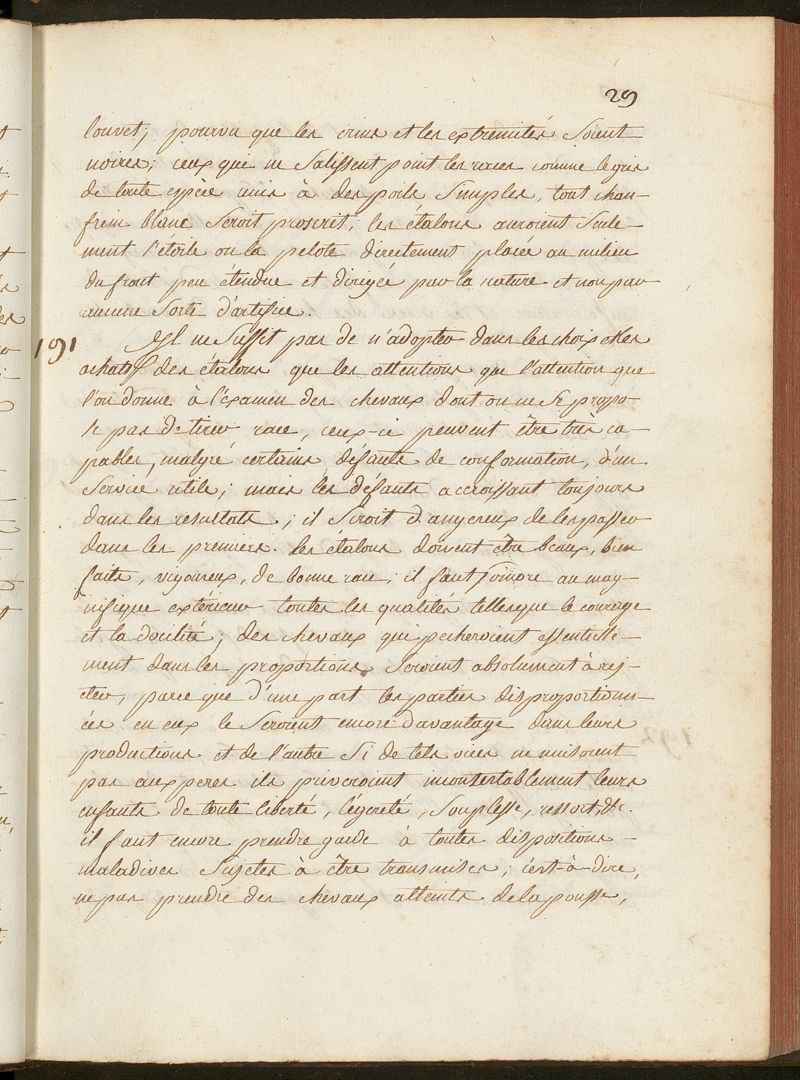 29
louvet; pourvu que les crins et les extremités soient
noires; ceux que ne salissent point les races comme le gris
de toute espèce unis à des poils simples, tout chan-
frein blanc seroit proscrit, les étalons auroient seule-
ment l'étoile ou la pelote directement placée au milieu
du front peu étendue et dirigée par la nature et non par
aucune sorte d'artifice.
191 Il ne suffit pas de n'adopter dans les choix et les
achats des étalons que les attentions que l'attention que
l'on donne à l'éxamen des chevaux dont on ne se propo-
se pas de tirer race, ceux-ci peuvent être très ca-
pables, malgré certains défauts de conformation, d'un
service utile; mais les défauts accroissant toujours
dans les resultats; il seroit dangereux de les passer
dans les premiers. les étalons doivent être beaux, bien
faits, vigoureux, de bonne race; il faut joindre au mag-
nifique extérieur toutes les qualités telles que le courage
et la docilité; des chevaux qui pecheroient essentielle-
ment dans les proportions seroient absolument à rej-
etter, parce que d'une part les parties disproportionn-
ées en eux le seroient encore davantage dans leurs
productions et de l'autre si de tels vices ne nuisoient
pas aux peres ils priveroient incontestablement leurs
enfants de toute liberté, légereté, souplesse, ressort, &c.
il faut encore prendre garde à toutes dispositions
maladives sujetes à être transmises; c'est-à-dire,
ne pas prendre des chevaux atteints de la pousse,